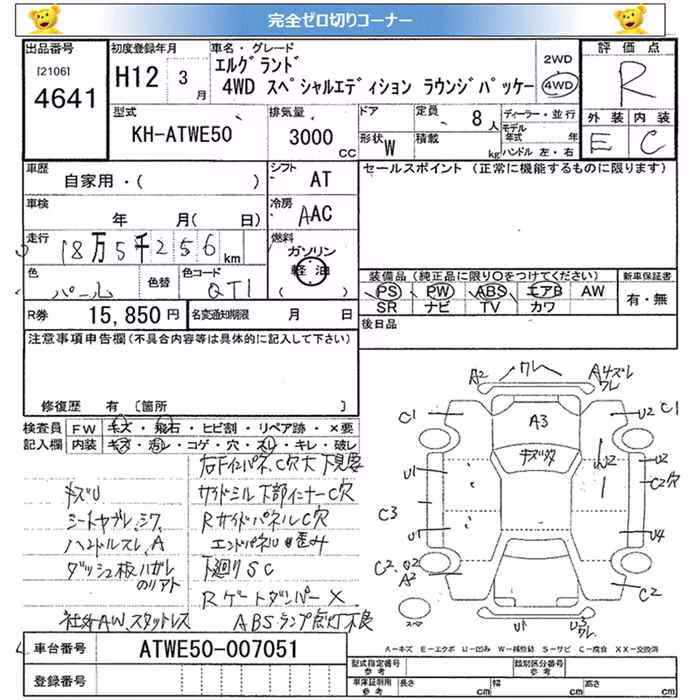 完全ゼロ切りコーナー
出品番号
[2106]
4641
初度登録年月
H12 3月
車名・グレード
エルグランド
4WD スペシャルエディション ラウンジパッケー
2WD
4WD
評価点
R
外装 内装
E C
型式
KH-ATWE50
排気量
3000
CC
ドア
形状 W
定員 8人
積載 kg
ディーラー・並行
モデル年式 年
ハンドル 左・右
車歴
自家用・( )
シフト
AT
セールスポイント (正常に機能するものに限ります)
車検
年 月( 日)
冷房
AAC
走行
18万5千256km
燃料
ガソリン
軽油
( )
色
パール
色替
色コード
QT1
装備品 (純正品に限り○をつけてください)
PS PW ABS エアB AW
SR ナビ TV カワ
新車保証書
有・無
R券 15,850円
名変通知期限 月 日
後日品
注意事項申告欄(不具合内容等は具体的に記入して下さい)
修復歴 有 〔箇所 〕
検査員記入欄
FW キズ・飛石・ヒビ割・リペア跡・×要
内装 キズ・汚レ・コゲ・穴・スレ・キレ・破レ
右FインパネC穴大 下見要
キズU
サイドシル下部インナーC穴
シートヤブレ、シワ
RサイドパネルC穴
ハンドルスレ、A
エンドパネル歪み
ダッシュ板ハガレ
のリアト
下廻りSC
Rゲートダンパー×
社外AW、スタッドレス
ABSランプ点灯不良
A2 ワレ A4ズレ
ワレ
C1 A3 U2 C1
キズ
U1 W2 U2
C2穴
C3
U1 U4
C2.U2
A2
C2
スペ
U1 U3
ワレ
A-キズ E-エクボ U-凹み W-補修跡 S-サビ C-腐食 XX-交換済
車台番号 ATWE50-007051
登録番号
型式指定番号
参考
類別区分番号
参考
車庫証明用
参考
長さ cm 幅 cm 高さ cm